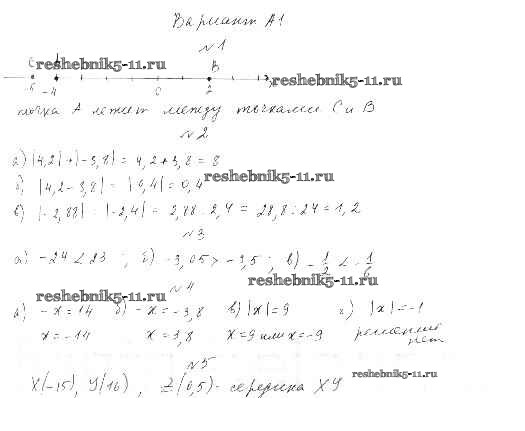 Вариант А1
№1
C reshebnik5-11.ru B
-4 0 2 reshebnik5-11.ru
точка А лежит между точками С и В
№2
а) |4,2| + |-3,8| = 4,2 + 3,8 = 8
б) |4,2 - 3,8| = |0,4| = 0,4 reshebnik5-11.ru
в) |-2,88| : |-2,4| = 2,88 : 2,4 = 28,8 : 24 = 1,2
№3
а) -24 < 23 ; б) -3,05 > -3,5 ; в) -1/2 < -1/6
reshebnik5-11.ru
reshebnik5-11.ru №4
а) -x = 14 б) -x = -3,8 в) |x| = 9 г) |x| = -1
x = -14 x = 3,8 x = 9 или x = -9 решений нет
№5
X(-15), Y(16), Z(0,5) - середина XY reshebnik5-11.ru